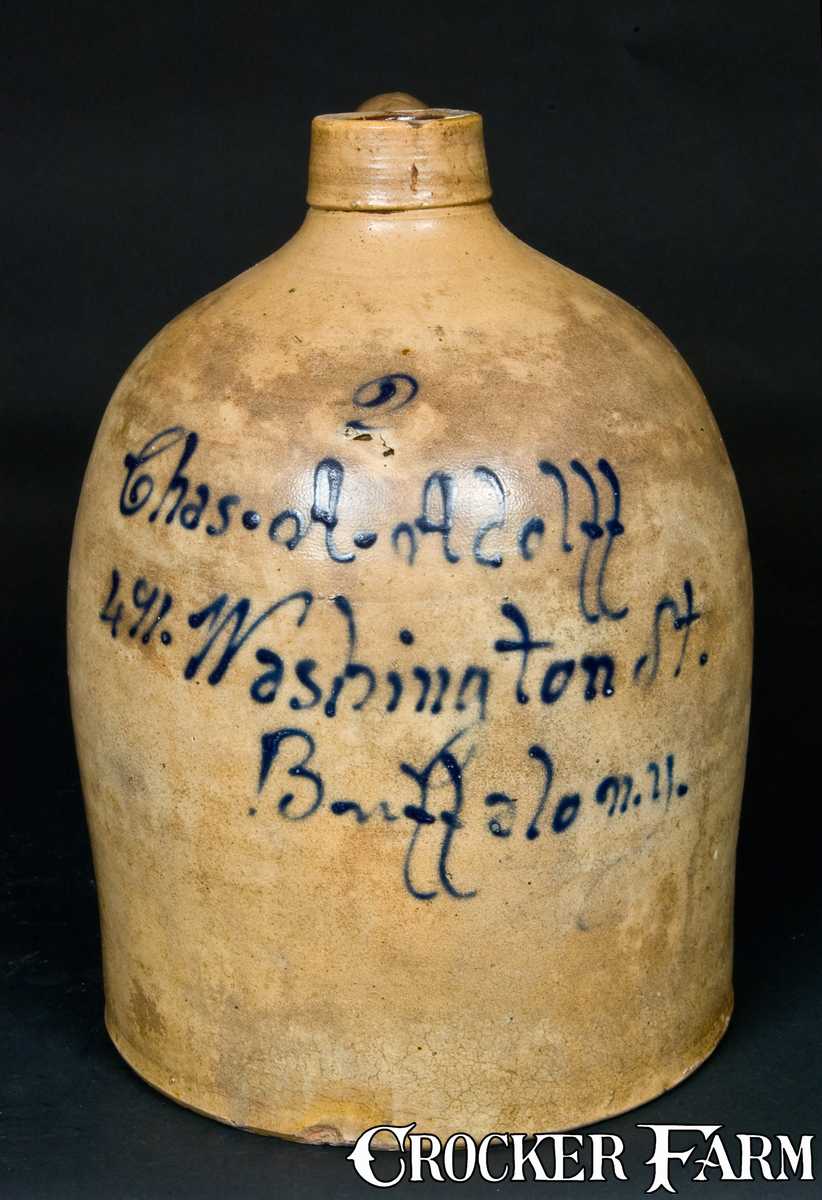 2
Chas. A. Adolff
491. Washington St.
Buffalo n.y.
CROCKER FARM